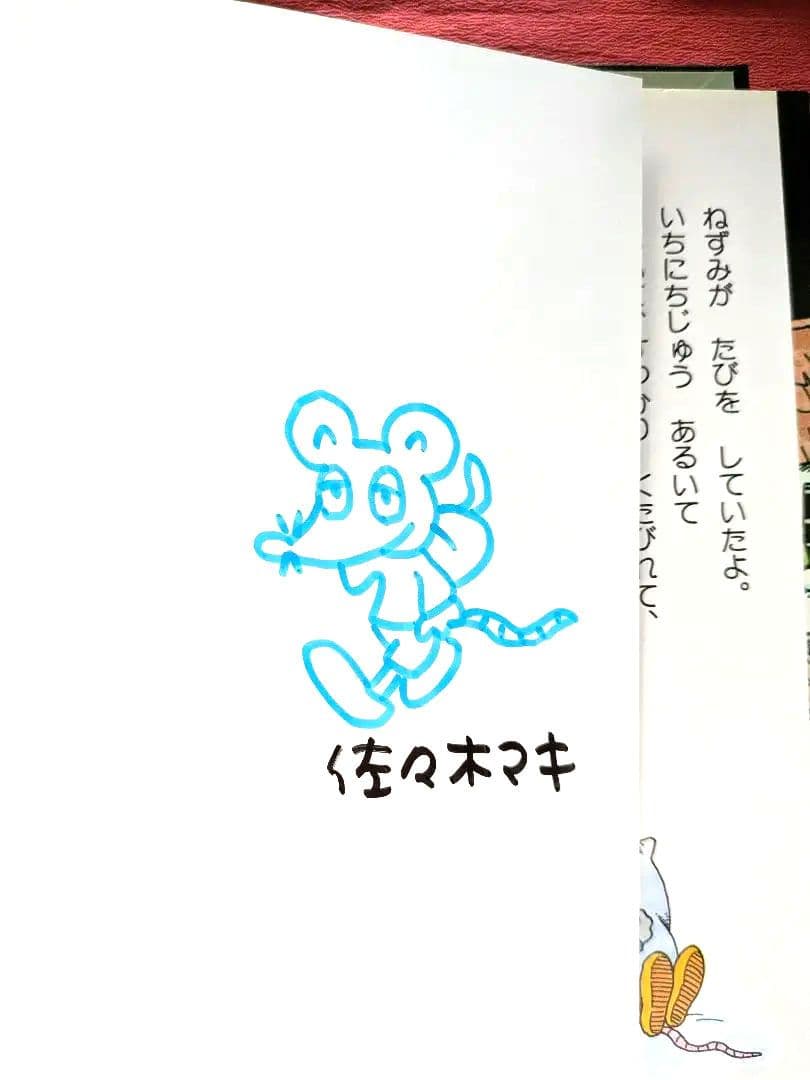 ねずみが　たびを　していたよ。
いちにちじゅう　あるいて
くたびれて、
佐々木マキ